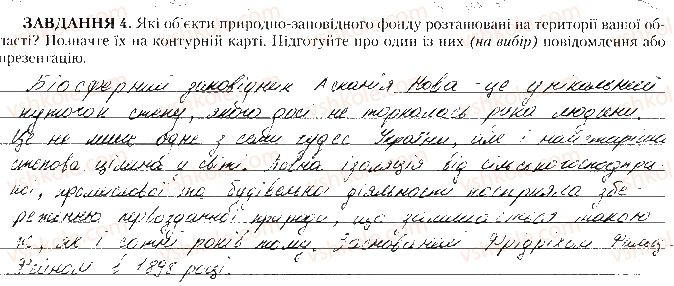 ЗАВДАННЯ 4. Які об'єкти природно-заповідного фонду розташовані на території вашої об-
ласті? Позначте їх на контурній карті. Підготуйте про один із них (на вибір) повідомлення або
презентацію.
Біосферний заповідник Асканія Нова - це унікальний
куточок степу, якого досі не торкалась рука людини.
Це не лише одне з семи чудес України, але і найстаріша
степова цілина у світі. Повна ізоляція від сільськогосподарсь-
кої, промислової та будівельної діяльности посприяла збе-
реженню первозданної природи, що залишається такою
ж, як і сотні років тому. Заснований Фрідріхом Фальц-
Фейном в 1898 році.